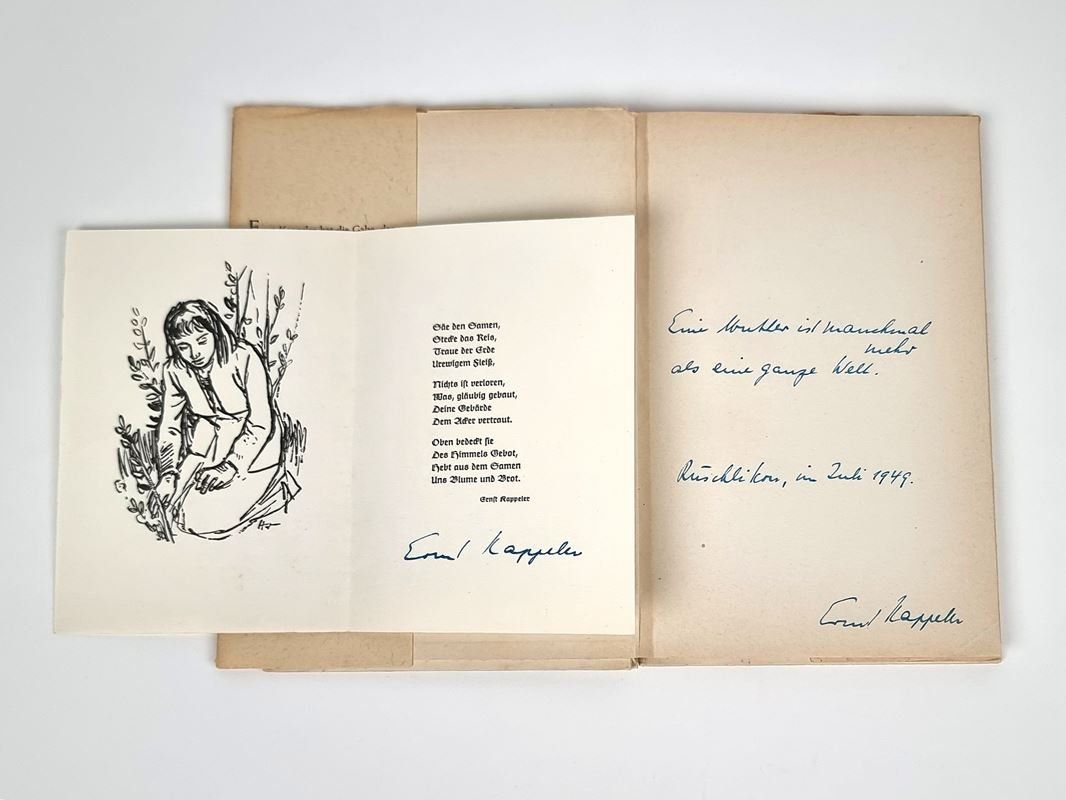 Säe den Samen,
Stecke das Reis,
Traue der Erde
Urewigem Fleiß,
Nichts ist verloren,
Was, gläubig gebaut,
Deine Gebärde
Dem Acker vertraut.
Oben bedeckt sie
Des Himmels Gebot,
Hebt aus dem Samen
Uns Blume und Brot.
Ernst Kappeler
Ernst Kappeler
Eine Mutter ist manchmal
mehr
als eine ganze Welt.
Rüschlikon, im Juli 1949.
Ernst Kappeler